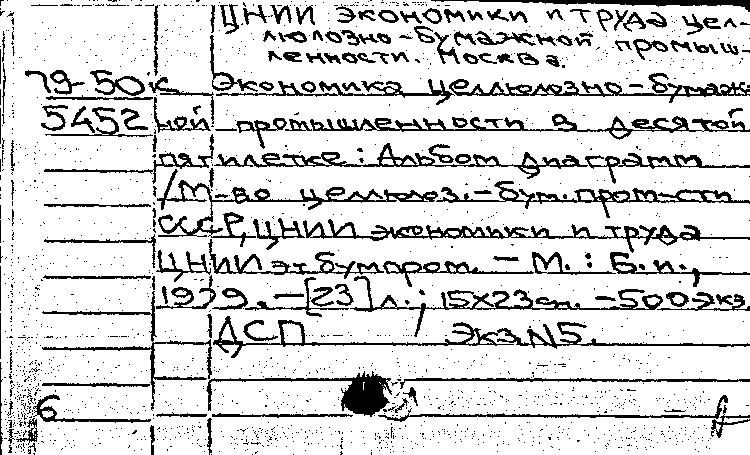 ЦНИИ экономики и труда цел-
люлозно-бумажной промыш-
ленности. Москва.
79-50к Экономика целлюлозно-бумаж-
5452 ной промышленности в десятой
пятилетке: Альбом диаграмм
/М-во целлюлоз.-бум. пром-сти
СССР, ЦНИИ экономики и труда
ЦНИИэтбумпром. - М.: Б.и.,
1979. - [23] л.; 15х23см. - 500экз.
ДСП. Экз.N5.
6